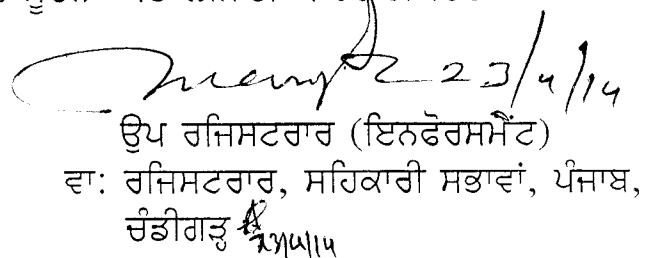 23/4/14
ਉਪ ਰਜਿਸਟਰਾਰ (ਇਨਫੋਰਸਮੈਂਟ)
ਵਾ: ਰਜਿਸਟਰਾਰ, ਸਹਿਕਾਰੀ ਸਭਾਵਾਂ, ਪੰਜਾਬ,
ਚੰਡੀਗੜ੍ਹ 23/4/14